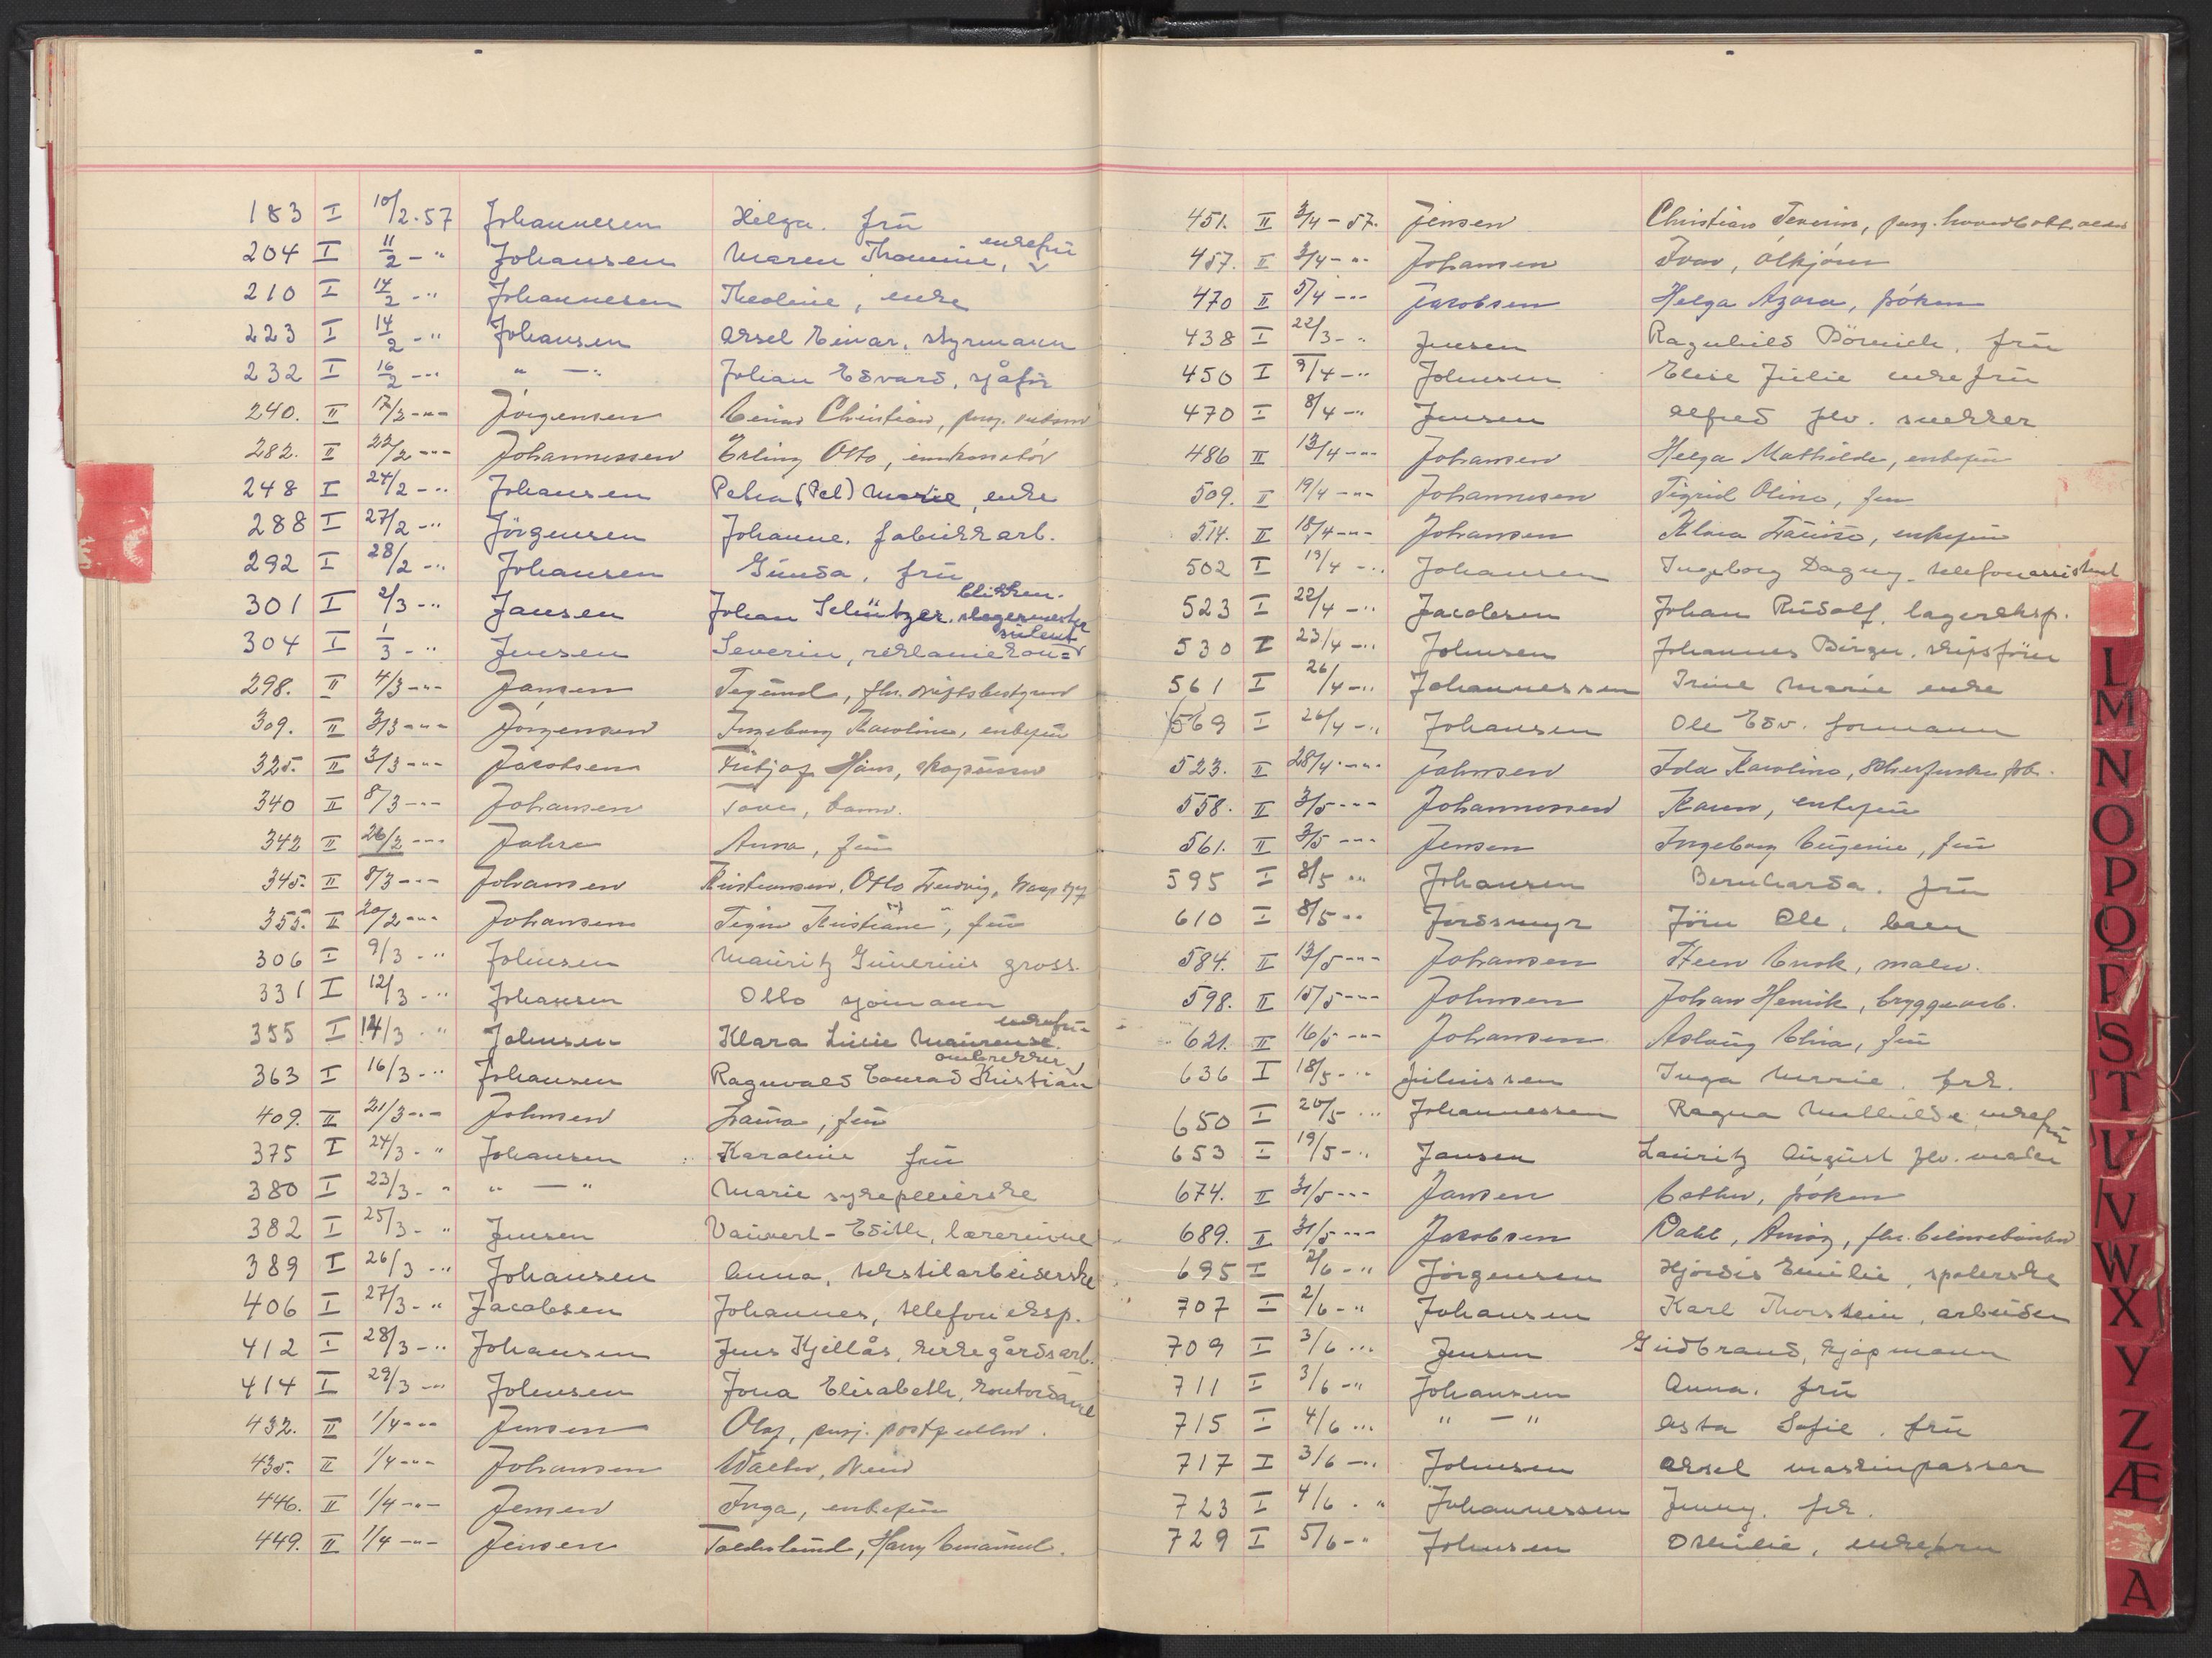 183 I 10/2-57 Johannesen Helga. frü
204 I 11/2 - " Johansen Maren Thomine, enkefrü
210 I 14/2 - " Johannesen Theoline, enke
223 I 14/2 - " Johansen Aksel Einar, styrmann
232 I 16/2 - " " — " Johan Edvard, sjåför
240. II 17/2 - " - Jörgensen Einar Christian, pensj.
282. II 22/2 - " - Johannessen Erling Otto, innkassatör
248 I 24/2 - " Johansen Petra (Pel) Marie, enke
288 I 27/2 - " Jörgensen Johanne. fabrikkarb.
292 I 28/2 - " Johansen Gunda, frü
301 I 2/3 - " Jansen Johan Schützer, slagermester
304 I 1/3 - " Jensen Severin, reklamekonsulent
298. II 4/3 - " - Jansen Segund, fhv. driftsbestyrer
309. II 3/3 - " - Jörgensen Ingeborg Karoline, enkefrü
325. II 3/3 - " - Jacobsen Fritjof Hans,
340 II 8/3 - " - Johansen Tove, barn.
342 II 26/2 - " - Jahre Anna, frü
345. II 8/3 - " - Johansen Kristiansen, Otto Ludvig,
355. II 20/2 - " - Johansen Signe Kristiane, frü
306 I 9/3 - " Johnsen Mauritz Gunerius gross.
331 I 12/3 - " Johansen Otto sjömann
355 I 14/3 - " Johnsen Klara Lilie Maurense. enkefrü
363 I 16/3 - " Johansen Ragnvald Conrad Kristian
409. II 21/3 - " - Johnsen Laura, frü
375 I 24/3 - " Johansen Karoline frü
380 I 23/3 - " " — " Marie sykepleierske
382 I 25/3 - " Jensen - Edith, lærerinne
389 I 26/3 - " Johansen Anna, tekstilarbeiderske
406 I 27/3 - " Jacobsen Johannes, telefoneksp.
412 I 28/3 - " Johansen Jens Kjellås, kirkegårdsarb.
414 I 29/3 - " Johnsen Jona Elisabeth, kontordame
432. II 1/4 - " - Jensen Olaf, pensj. postfullm.
435. II 1/4 - " - Johansen
446. II 1/4 - " - Jensen Inga, enkefrü
449. II 1/4 - " - Jensen Harry Emanuel.
451. II 3/4 - 57. Jensen Christian Severin, pens.
457. II 3/4 - " - Johansen Ivar, ölkjörer
470 II 5/4 - " - Jacobsen Helga Azora, fröken
438 I 22/3 - " Jensen Ragnhild frü
450 I 9/4 - " Johnsen Elise Julie enkefrü
470 I 8/4 - " Jensen Alfred fhv. snekker
486 II 13/4 - " - Johansen Helga Mathilde, enkefrü
509. II 19/4 - " - Johannesen Sigrid Oline, frü
514. II 18/4 - " - Johansen Klara Lovise, enkefrü
502 I 19/4 - " Johansen Ingeborg Dagny. telefonassistent
523 I 22/4 - " Jacobsen Johan Rudolf, lagereksp.
530 I 23/4 - " Johnsen Johannes Birger. skipsförer
561 I 26/4 - " Johannessen Trine Marie enke
569 I 26/4 - " Johansen Ole Edv. formann
523. II 28/4 - " - Johnsen Ida Karoline,
558. II 3/5 - " - Johannessen Karen, enkefrü
561. II 3/5 - " - Jensen Ingeborg Eugenie, frü
595 I 8/5 " Johansen Bernharda. frü
610 I 8/5 - " Jordsmyr Jörn Ole, barn
584. II 13/5 - " - Johansen Steen Enok, maler.
598. II 15/5 - " - Johnsen Johan Henrik, bryggearb.
621. II 16/5 - " - Johansen Aslaug Elisa, frü
636 I 18/5 - " Juliussen Inga Marie. frk.
650 I 20/5 - " Johannessen Ragna Mathilde enkefrü
653 I 19/5 - " Jansen Lauritz August fhv. maler
674. II 31/5 - " - Jansen Esther, fröken
689. II 31/5 - " - Jacobsen Dahl,
695 I 2/6 - " Jörgensen Hjördis Emilie, spolerske
707 I 2/6 - " Johansen Karl Thorstein, arbeider
709 I 3/6 - " Jensen Gudbrand, kjøpmann
711 I 3/6 - " Johansen Anna. frü
715 I 4/6 - " " — " Asta Sofie. frü
717 I 3/6 - " Johnsen Aksel maskinpasser
723 I 4/6 - " Johannessen Jenny. frk.
729 I 5/6 - " Johnsen Othilie, enkefru
L
M
N
O
P
Q
R
S
T
U
V
W
X
Y
Z
Æ
A